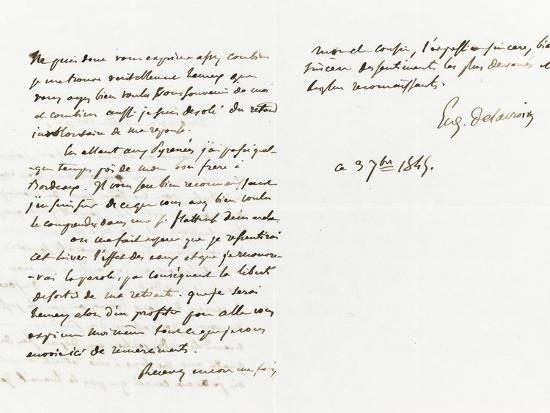 Je puis donc vous exprimer assez combien
je me trouve véritablement heureux que
vous ayez bien voulu vous souvenir de moi
et combien aussi je suis désolé du retard
involontaire de ma réponse.
En allant aux Pyrénées j'ai passé quel-
que temps près de mon bon frère à
Bordeaux. Il vous sera bien reconnaissant
de ce que vous avez bien voulu
le comprendre dans une si flatteuse démarche
on me fait espérer que je ressentirai
cet hiver l'effet des eaux et que je recouvre-
-rai la parole, par conséquent la liberté
de sortir de ma retraite. que je serai
heureux alors d'en profiter pour aller vous
exprimer moi même tout ce que je vous
envoie ici de remerciments.
Recevez encore une fois
mon cher cousin, l'expression sincère, bien
sincère des sentiments les plus dévoués et
les plus reconnaissants.
Eug. Delacroix
ce 3 7bre 1845.